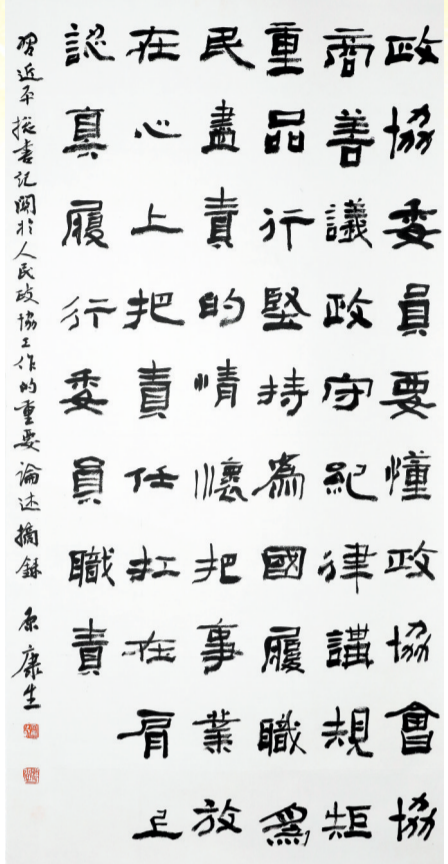 政協委員要懂政協會協
商善議政守紀律講規矩
重品行堅持為國履職為
民盡責的情懷把事業放
在心上把責任扛在肩上
認真履行委員職責
習近平總書記關於人民政協工作的重要論述摘錄 康生